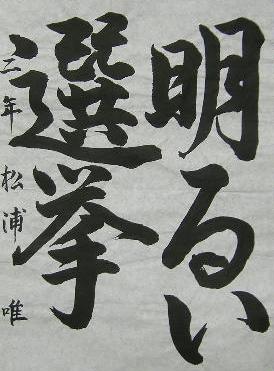 明るい
選挙
三年 松浦 唯